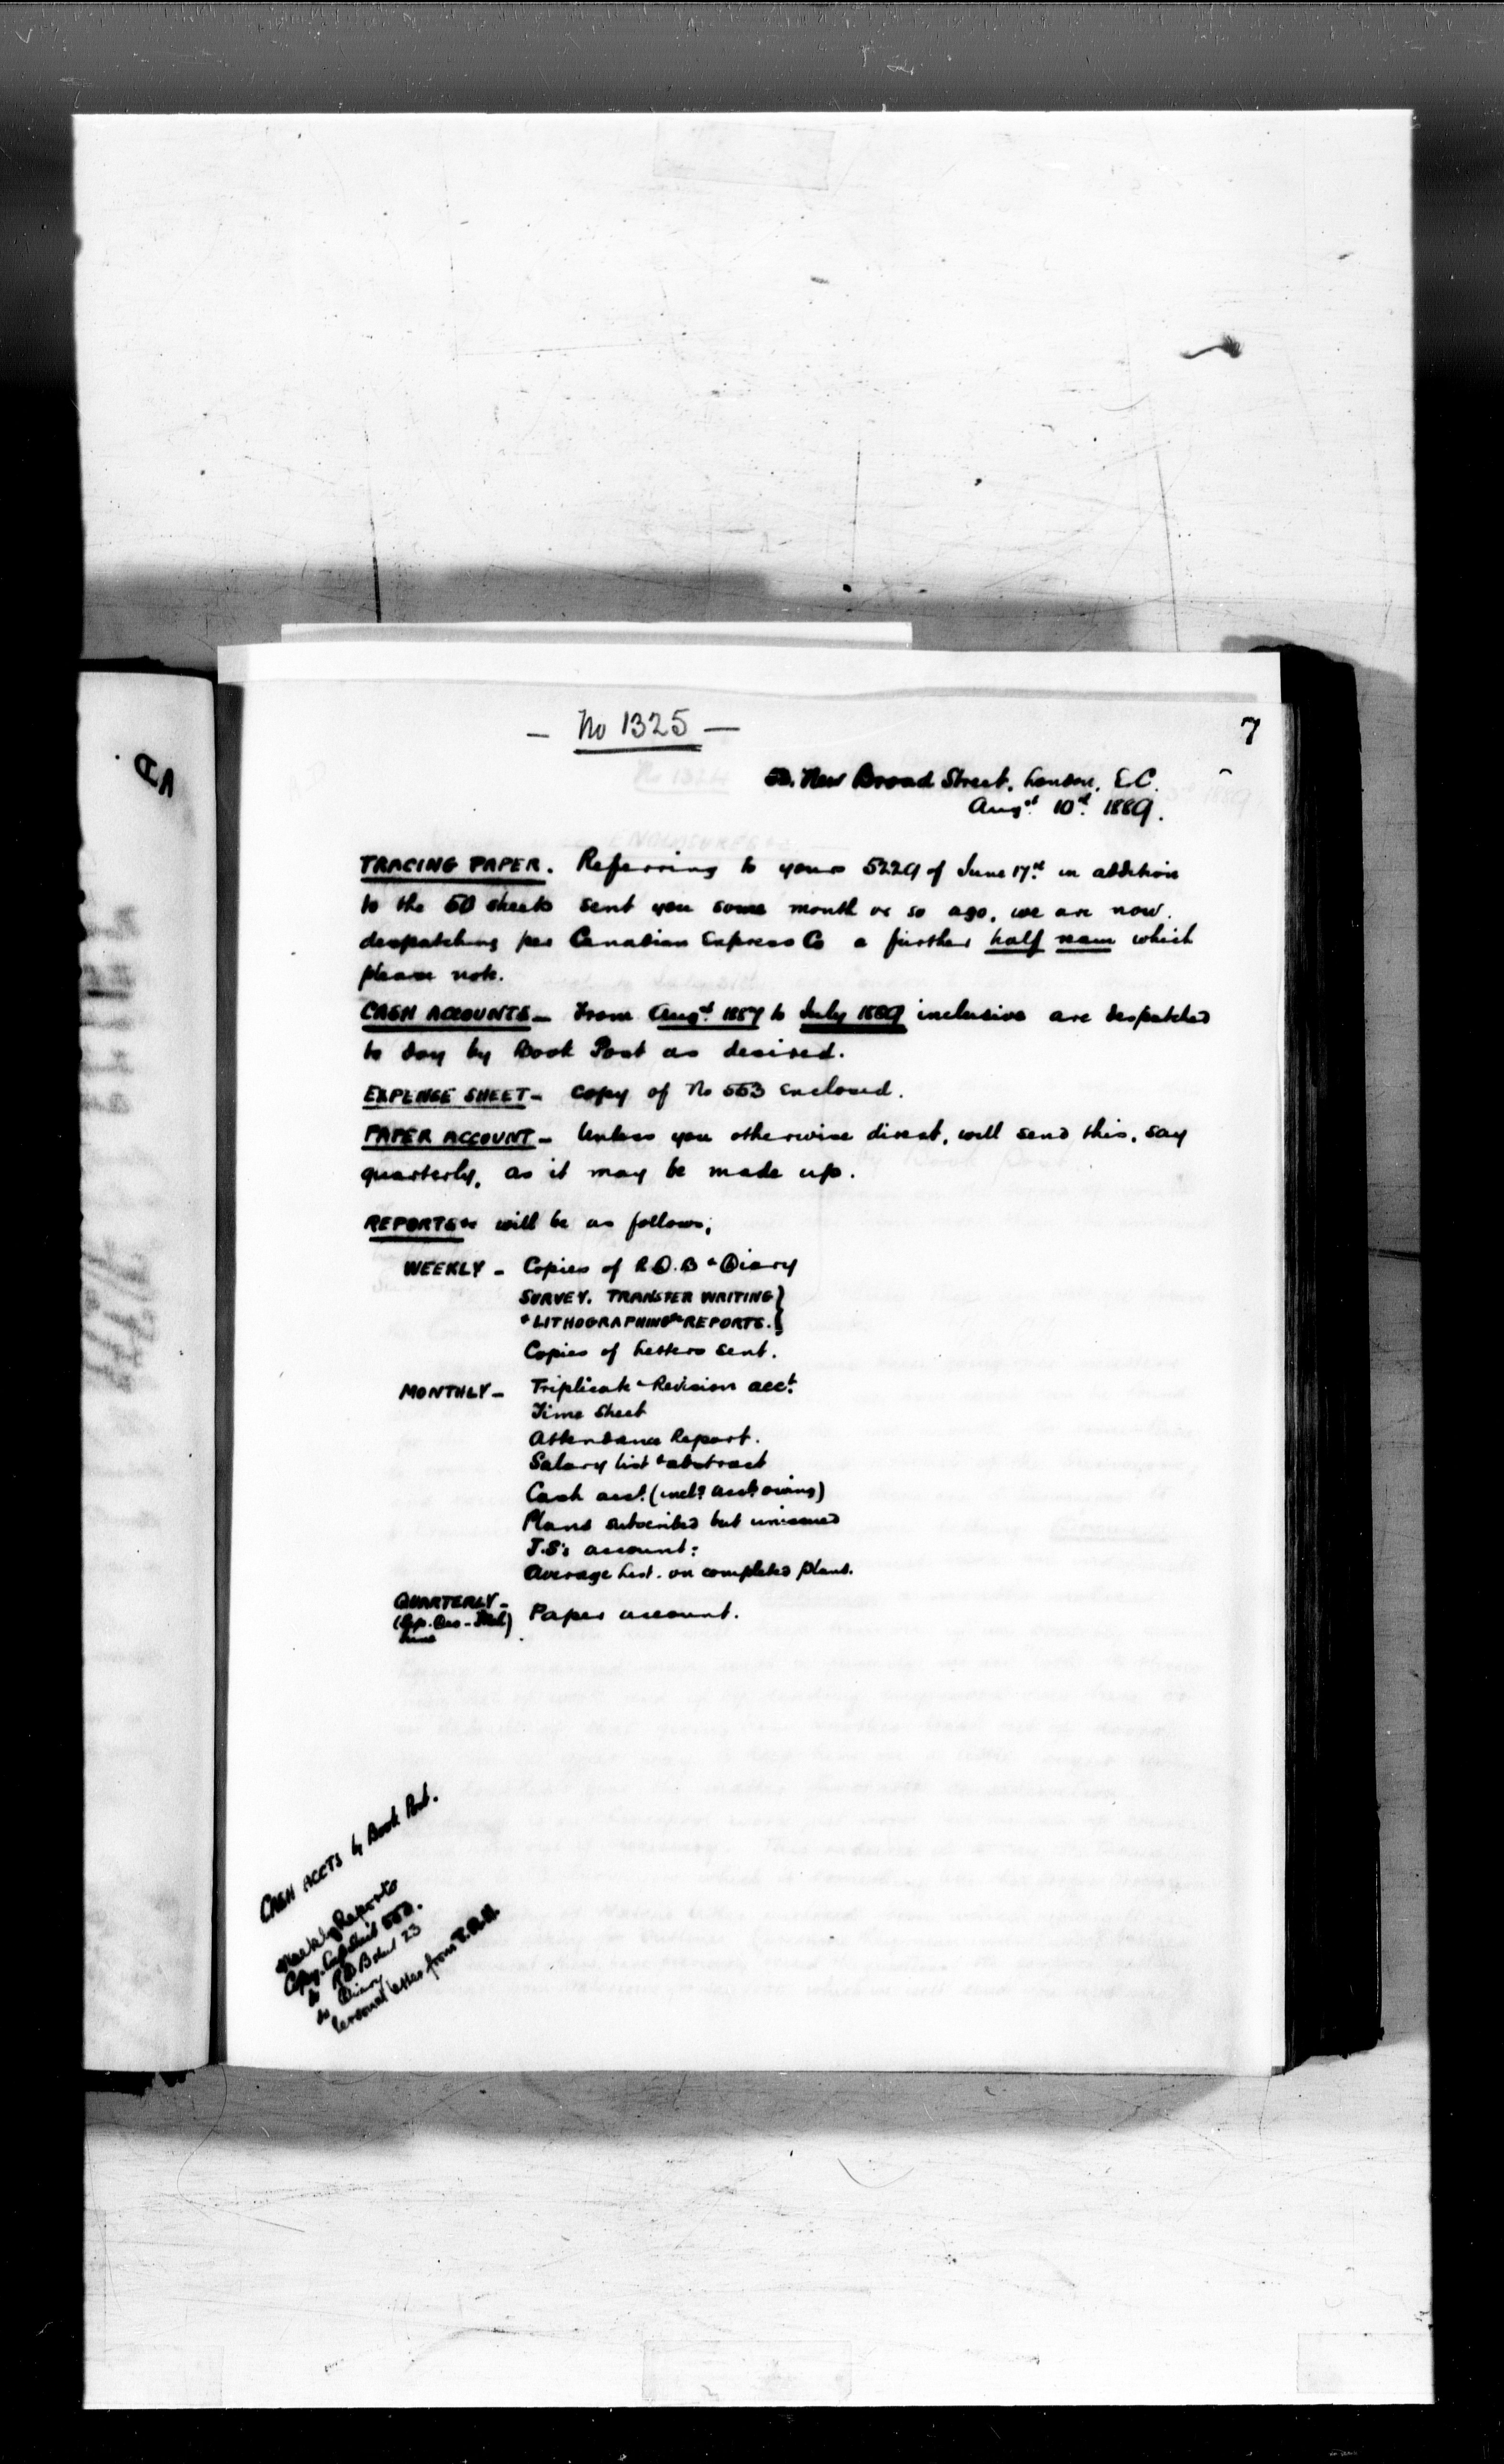 — No 1325 —
7
53. New Broad Street, London, E.C.
Augst 10th 1889.
TRACING PAPER. Referring to yours 5229 of June 17th in addition
to the 50 sheets sent you some month or so ago, we are now
despatching per Canadian Express Co a further half ream which
please note.
CASH ACCOUNTS — From Augst 1887 to July 1889 inclusive are despatched
to day by Book Post as desired.
EXPENSE SHEET — Copy of No 553 enclosed.
PAPER ACCOUNT — Unless you otherwise direct, will send this, say
quarterly, as it may be made up.
REPORTS &c will be as follows;
WEEKLY — Copies of R.D.B & Diary
SURVEY. TRANSFER WRITING }
& LITHOGRAPHING REPORTS. }
Copies of Letters Sent.
MONTHLY — Triplicate & Revision acct.
Time Sheet
Attendance Report.
Salary list & abstract
Cash acct. (incl. acct. owing)
Plans subscribed but unissued
J.S's account:
Average List. on completed plans.
QUARTERLY —
(Sep. Dec —
June
Paper account.
CASH ACCTS by Book Post.
Weekly Reports
Copy
do RDB 23
do Diary
Personal letter from